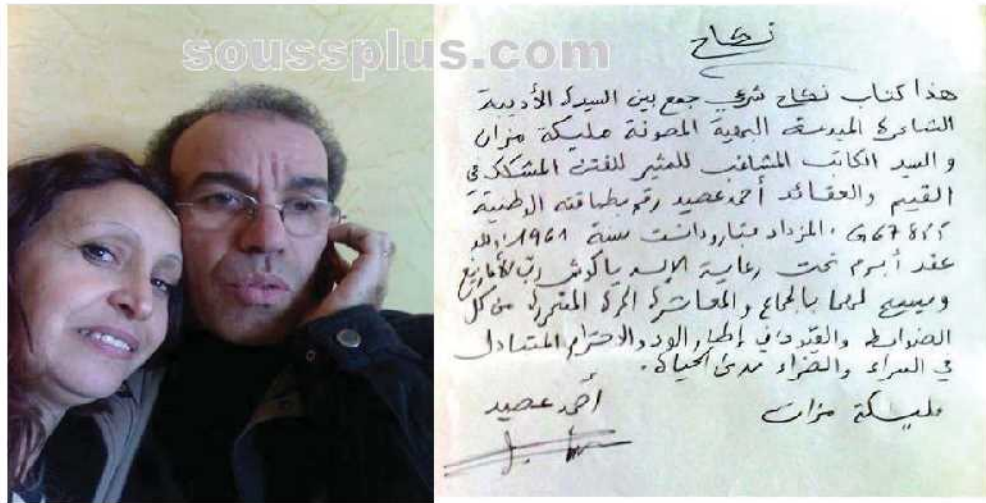 soussplus.com
نكاح
هذا كتاب نكاح شرعي جمع بين السيدة الأديبة
الشاعرة المبدعة البهية المصونة مليكة مزان
و السيد الكاتب المشاغب المثير للفتن المشكك في
القيم والعقائد أحمد عصيد رقم بطاقته الوطنية
المزداد بتارودانت سنة 1961
عقد أبرم تحت رعاية الإله ياكوش رب الأمازيغ
ويسمح لهما بالجماع والمعاشرة الحرة المتحررة من كل
الضوابط والقيود في إطار الود والاحترام المتبادل
في السراء والضراء مدى الحياة.
أحمد عصيد
مليكة مزان